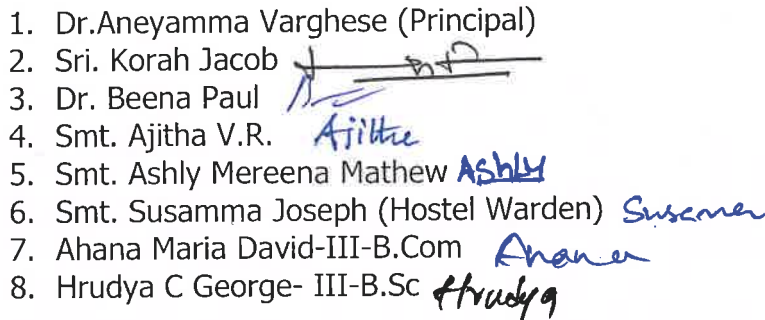 1. Dr.Aneyamma Varghese (Principal)
2. Sri. Korah Jacob
3. Dr. Beena Paul
4. Smt. Ajitha V.R. Ajitha
5. Smt. Ashly Mereena Mathew Ashly
6. Smt. Susamma Joseph (Hostel Warden) Susamma
7. Ahana Maria David-III-B.Com Ahana
8. Hrudya C George- III-B.Sc Hrudya